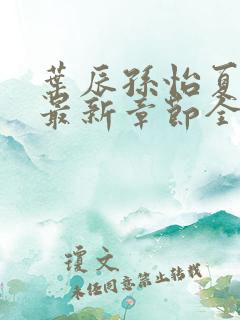 葉辰孫怡夏
最新章節全
瓊文
未经同意禁止转载